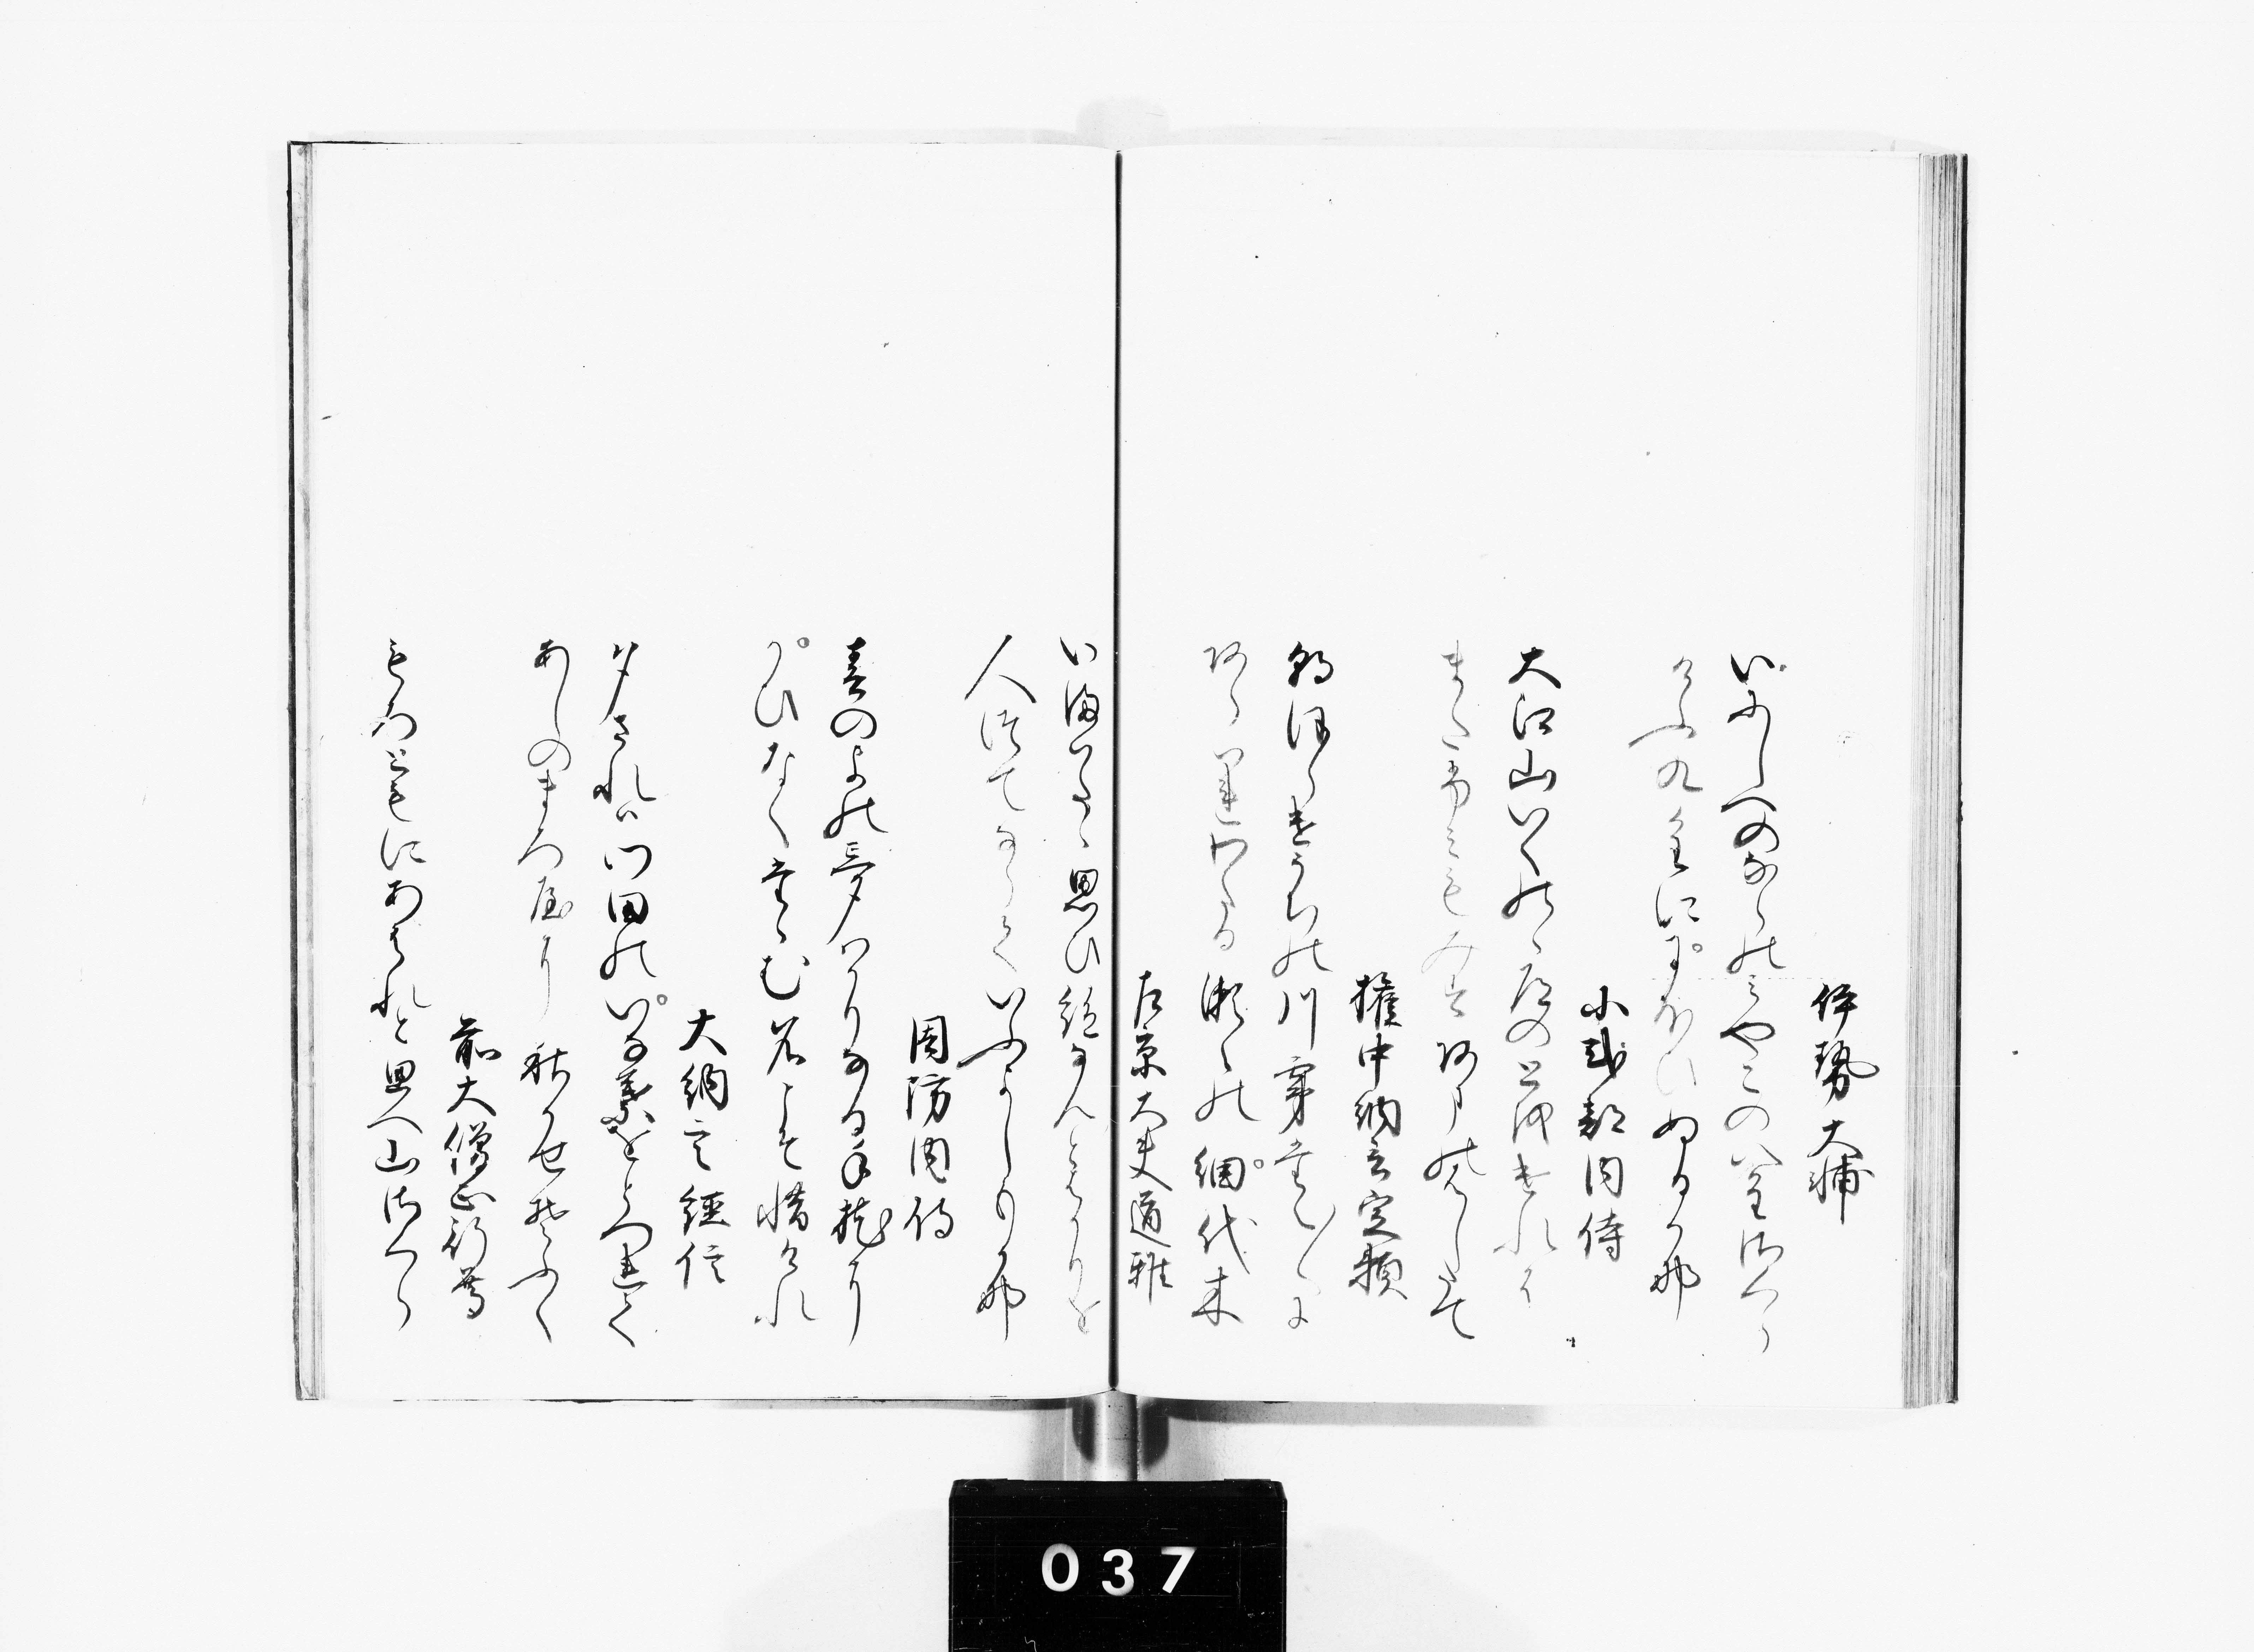 伊勢大輔
いにしへのならのみやこの八重さくら
けふ九重ににほひぬるかな
小式部内侍
大江山いくのゝ道のとをけれは
またふみもみすあまのはしたて
権中納言定頼
朝ほらけうちの川霧たえ〳〵に
あらはれわたる瀬々の網代木
左京大夫道雅
いまはたゝ思ひ絶なんとはかりを
人伝てならていふよしもかな
周防内侍
春のよの夢はかりなる手枕に
かひなくたゝむ名こそ惜けれ
大納言経信
夕されは門田のいな葉をとつれて
あしのまろ屋に秋かせそふく
前大僧正行尊
もろともにあはれと思へ山さくら
037